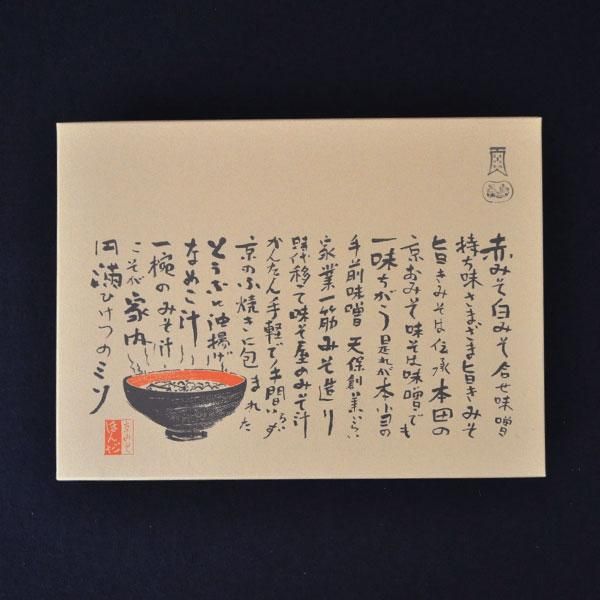 赤みそ白みそ合せ味噌
持ち味さまざま旨きみそ
旨きみそは伝承本田の
京おみそ味そは味噌でも
一味ちがう是れが本当の
手前味噌 天保創業いらい
家業一筋みそ造り
時代移って味そ屋のみそ汁
かんたん手軽で手間いらず
京のふ焼きに包まれた
とうふと油揚げ
なめこ汁
一椀のみそ汁
こそが家内
円満ひけつのミソ
ほんだ